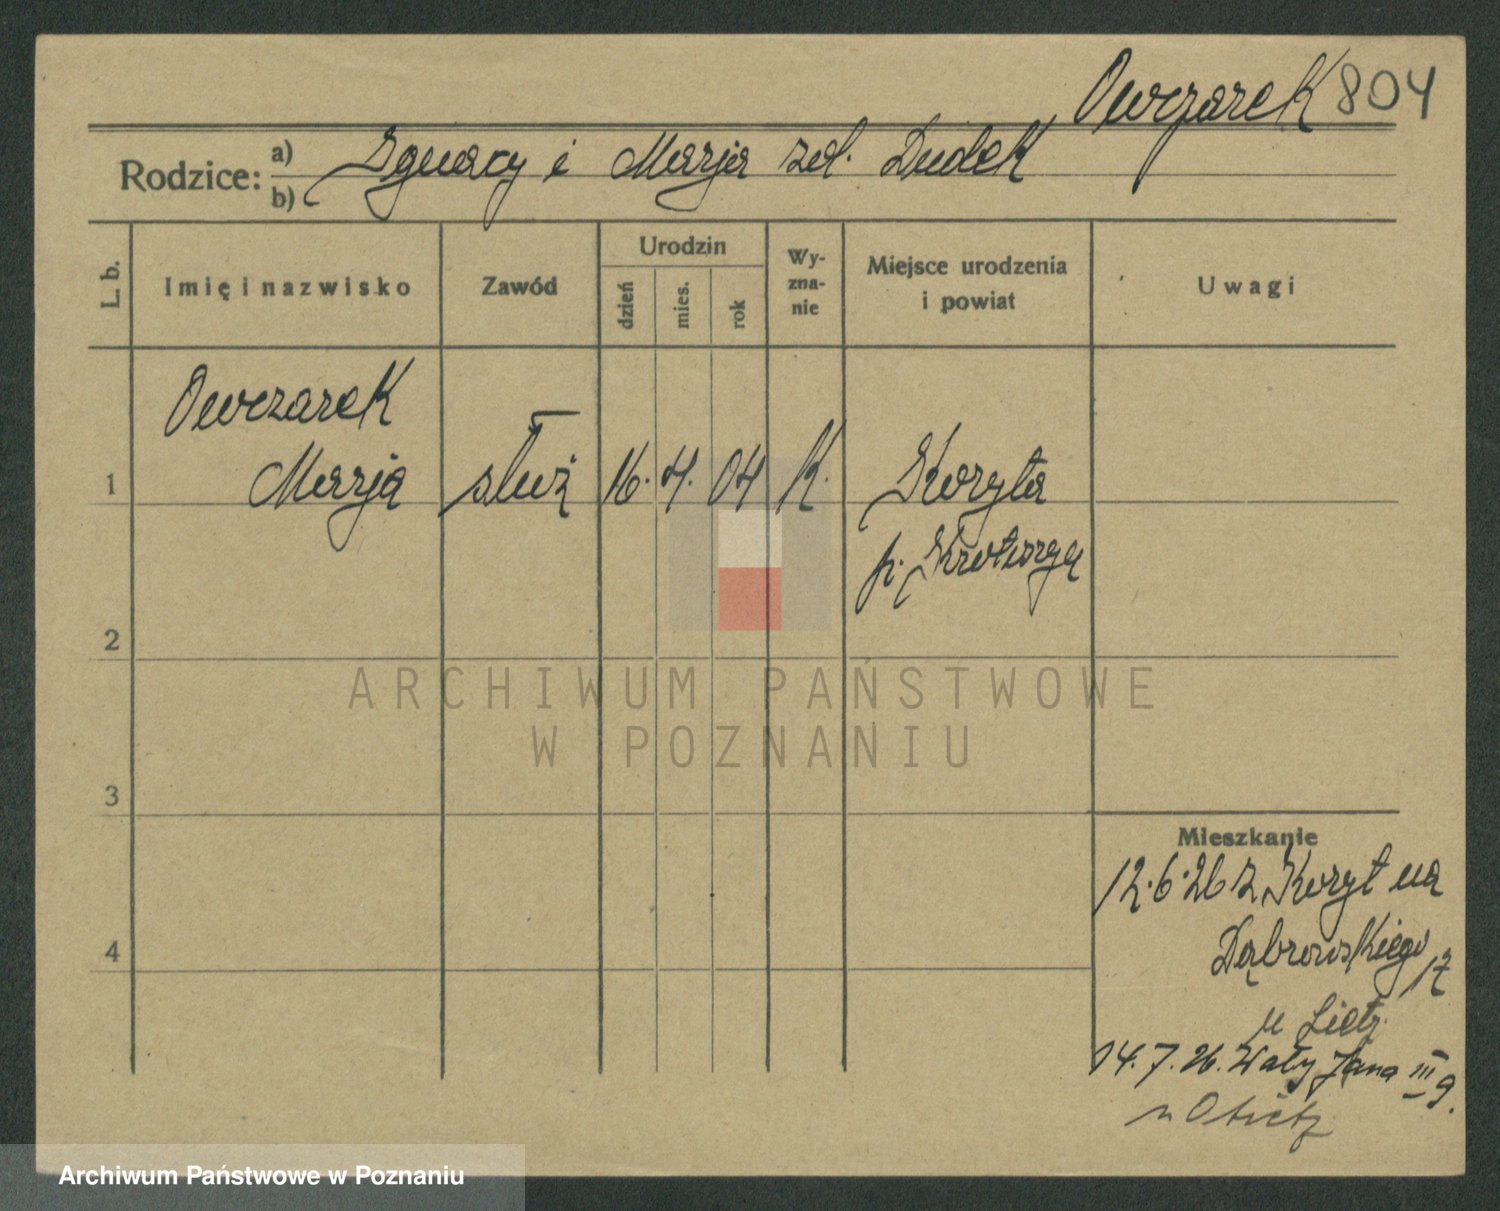 Owczarek 804
Rodzice: a) b) Ignacy i Marja zd. Dudek
L. b.
Imię i nazwisko
Zawód
Urodzin
dzień
mies.
rok
Wy-
zna-
nie
Miejsce urodzenia
i powiat
Uwagi
Owczarek
1 Marja służ 16. 4. 04 K. Koryta
p. Krotoszyn
2
3
4
Mieszkanie
12.6.26 z Koryt na
Dąbrowskiego
17
u Lietz
14.7.26. Wały Jana III 9.
u
ARCHIWUM PAŃSTWOWE
W POZNANIU
Archiwum Państwowe w Poznaniu